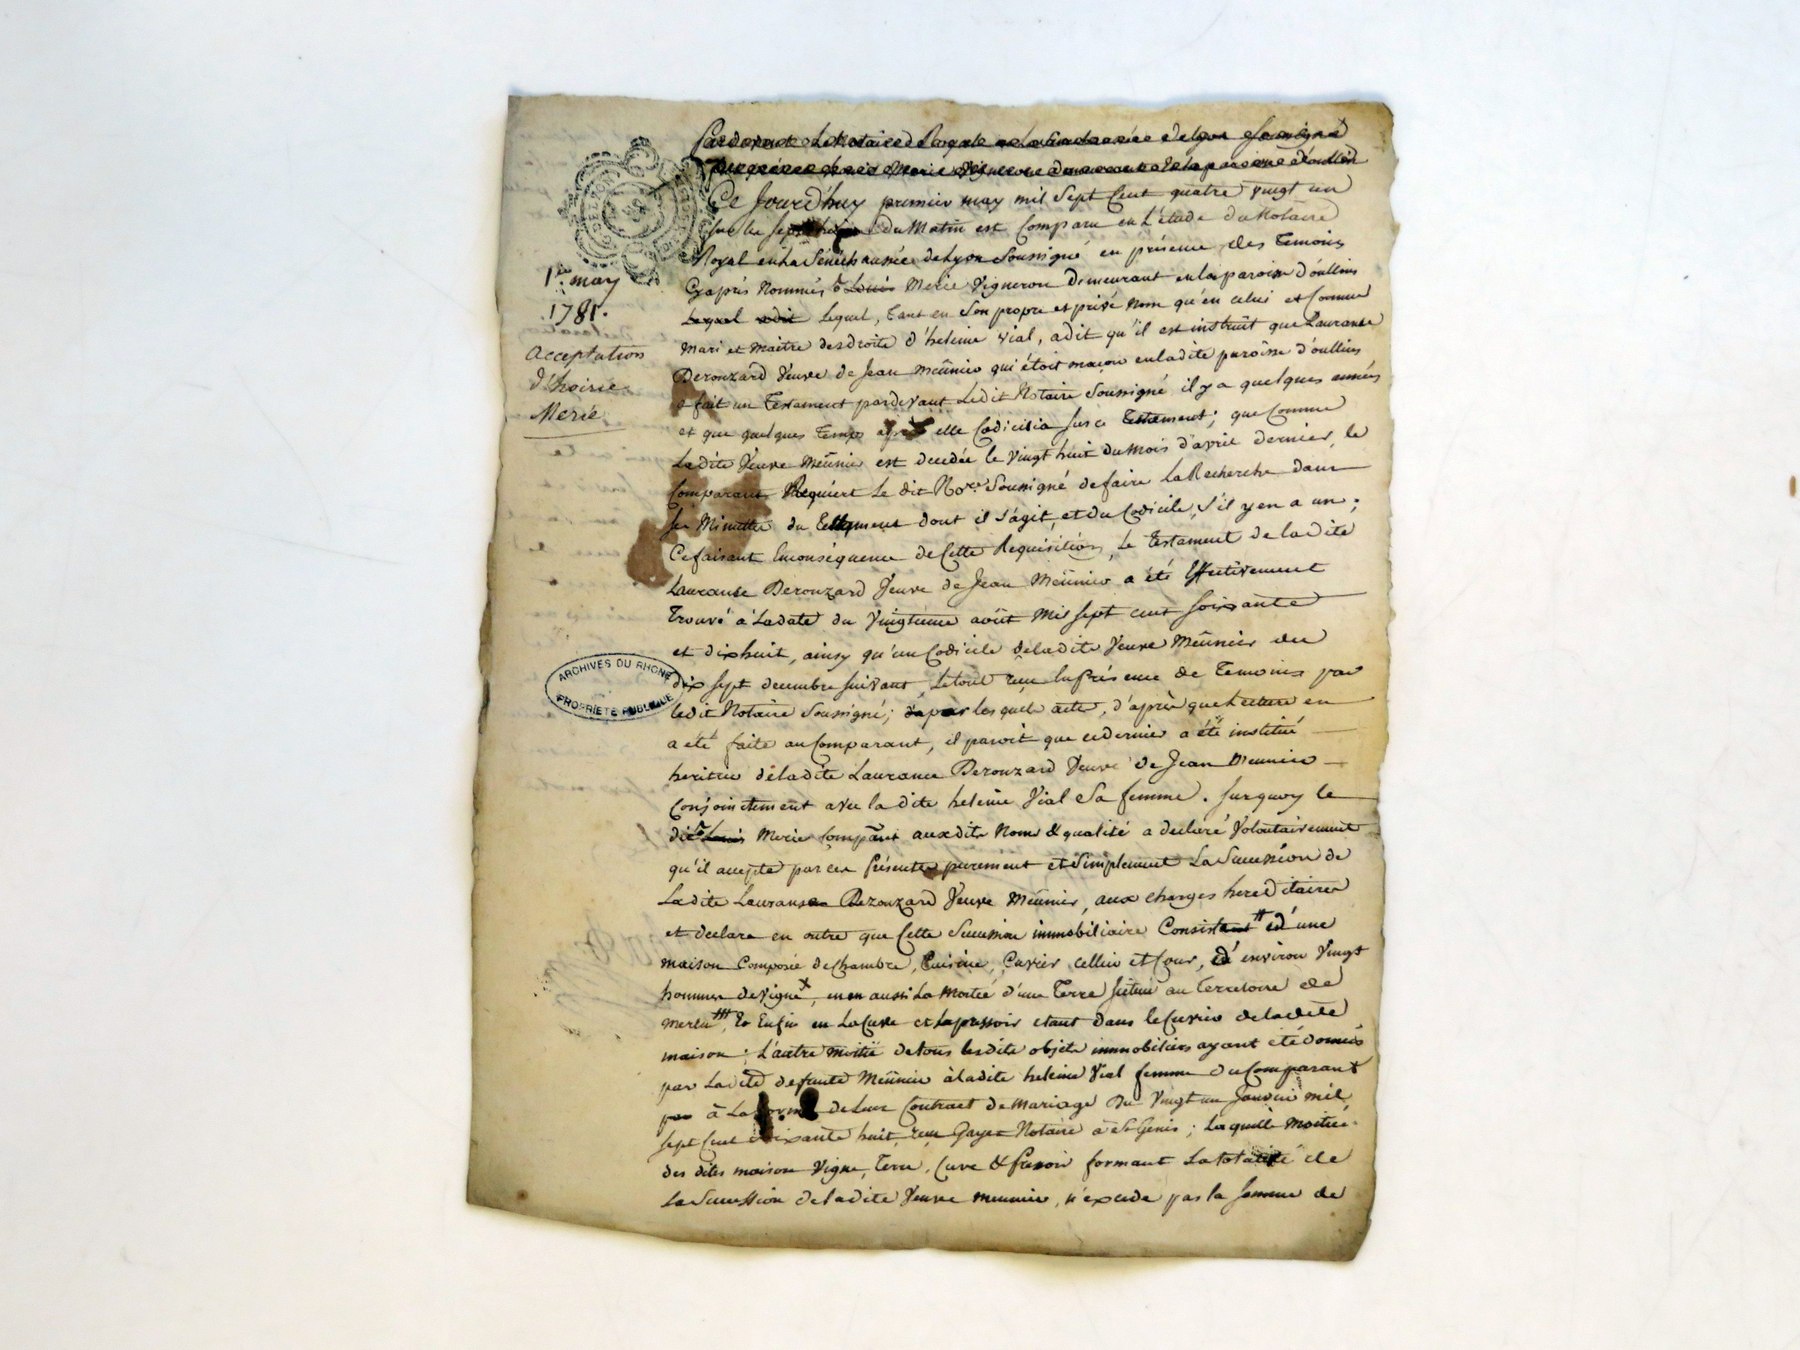 1er. may
1781.
acceptation
d'hoirie
Merié
ARCHIVES DU RHONE
PROPRIÉTÉ PUBLIQUE
Pardevant Le Notaire Royal en La Sénéchaussée de Lyon soussigné
Merie Vigneron demeurant en la paroisse d'oullins
Ce Jourd'huy premier may mil Sept Cent quatre vingt un
sur les sept heures du Matin est Comparu en L'étude du Notaire
Royal en La Sénéchaussée de Lyon Soussigné en présence des Temoins
Cyaprès Nommés Louis Merie Vigneron Demeurant en la paroisse d'oullins
Lequel adit lequel, Tant en Son propre et privé Nom qu'en celui et Comme
Mari et Maitre des droits d'heleine Vial, adit qu'il est instruit que Lauranse
Derouzard Veuve de Jean Meünier qui étoit maçon en ladite paroisse d'oullins
a fait un Testament pardevant Ledit Notaire Soussigné il y a quelques années
et que quelques Temps après elle Codicisia sur ce Testament; que Comme
Ladite Veuve Meünier est decedée le Vingt huit du Mois d'avril dernier, le
Comparant Requiert Le dit Nore. Soussigné de faire La Recherche dans
ses Minutes du Testament dont il s'agit, et du Codicile, s'il y en a un;
Ce faisant En conséquence de Cette Requisition, Le Testament de la dite
Lauranse Derouzard Veuve de Jean Meünier a été Effectivement
Trouvé à La date du Vingtieme août Mil sept cent soixante
et dix huit, ainsy qu'un Codicile de ladite Veuve Meünier du
dix sept decembre suivant, Le tout reçu En Présence de Temoins par
ledit Notaire Soussigné; lesquels actes, d'après que Lecture en
a été faite au Comparant, il paroit que ce dernier a été institué
heritier de ladite Laurance Derouzard Veuve de Jean Meunier
Conjointement avec la dite heleine Vial Sa femme. Surquoy le
dit Louis Merie Compant. auxdits Noms & qualité a declaré Volontairement
qu'il accepte par ces Présentes purement et Simplement La Succession de
Ladite Lauranse Derouzard Veuve Meünier, aux charges hereditaires
et declare en outre que Cette Succession immobiliaire Consistant en d'une
maison Composée de chambre, Cuisine, Cuvier cellier et Cour, d'environ Vingt
hommes de Vigne, aussi La Moitié d'une Terre située au Territoire de
Merlu, Et Enfin en La Cuve et Le pressoir etant Dans le Cuvier de ladite
maison; L'autre moitié de tous les dits objets immobiliers ayant été donnés
par Ladite defunte Meünier à ladite heleine Vial femme du Comparant
par à La forme de Leur Contract de Mariage du Vingt un Janvier mil
sept Cent soixante huit, reçu Gayet Notaire à St Genis; Laquelle Moitié
des dites maison Vigne, Terre, Cuve & Pressoir formant La totalité de
La Succession de ladite Veuve Meunier, n'excede pas la somme de